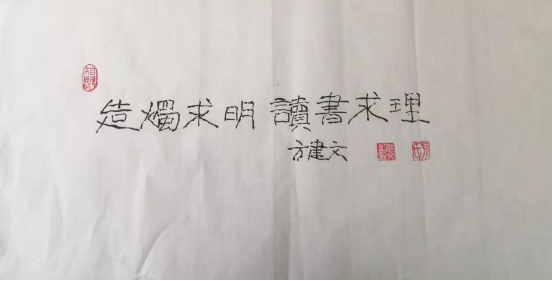 造燭求明 讀書求理
方建文